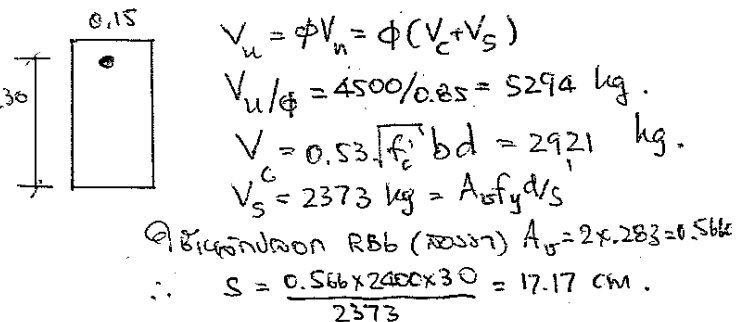 0.15
30
Vu = ϕVn = ϕ(Vc+Vs)
Vu/ϕ = 4500/0.85 = 5294 kg.
Vc = 0.53√fc' bd = 2921 kg.
Vs = 2373 kg = Avfyd/s
ใช้เหล็กปลอก RB6 (สองขา) Av = 2x.283 = 0.566
∴ S = 0.566x2400x30 / 2373 = 17.17 cm.